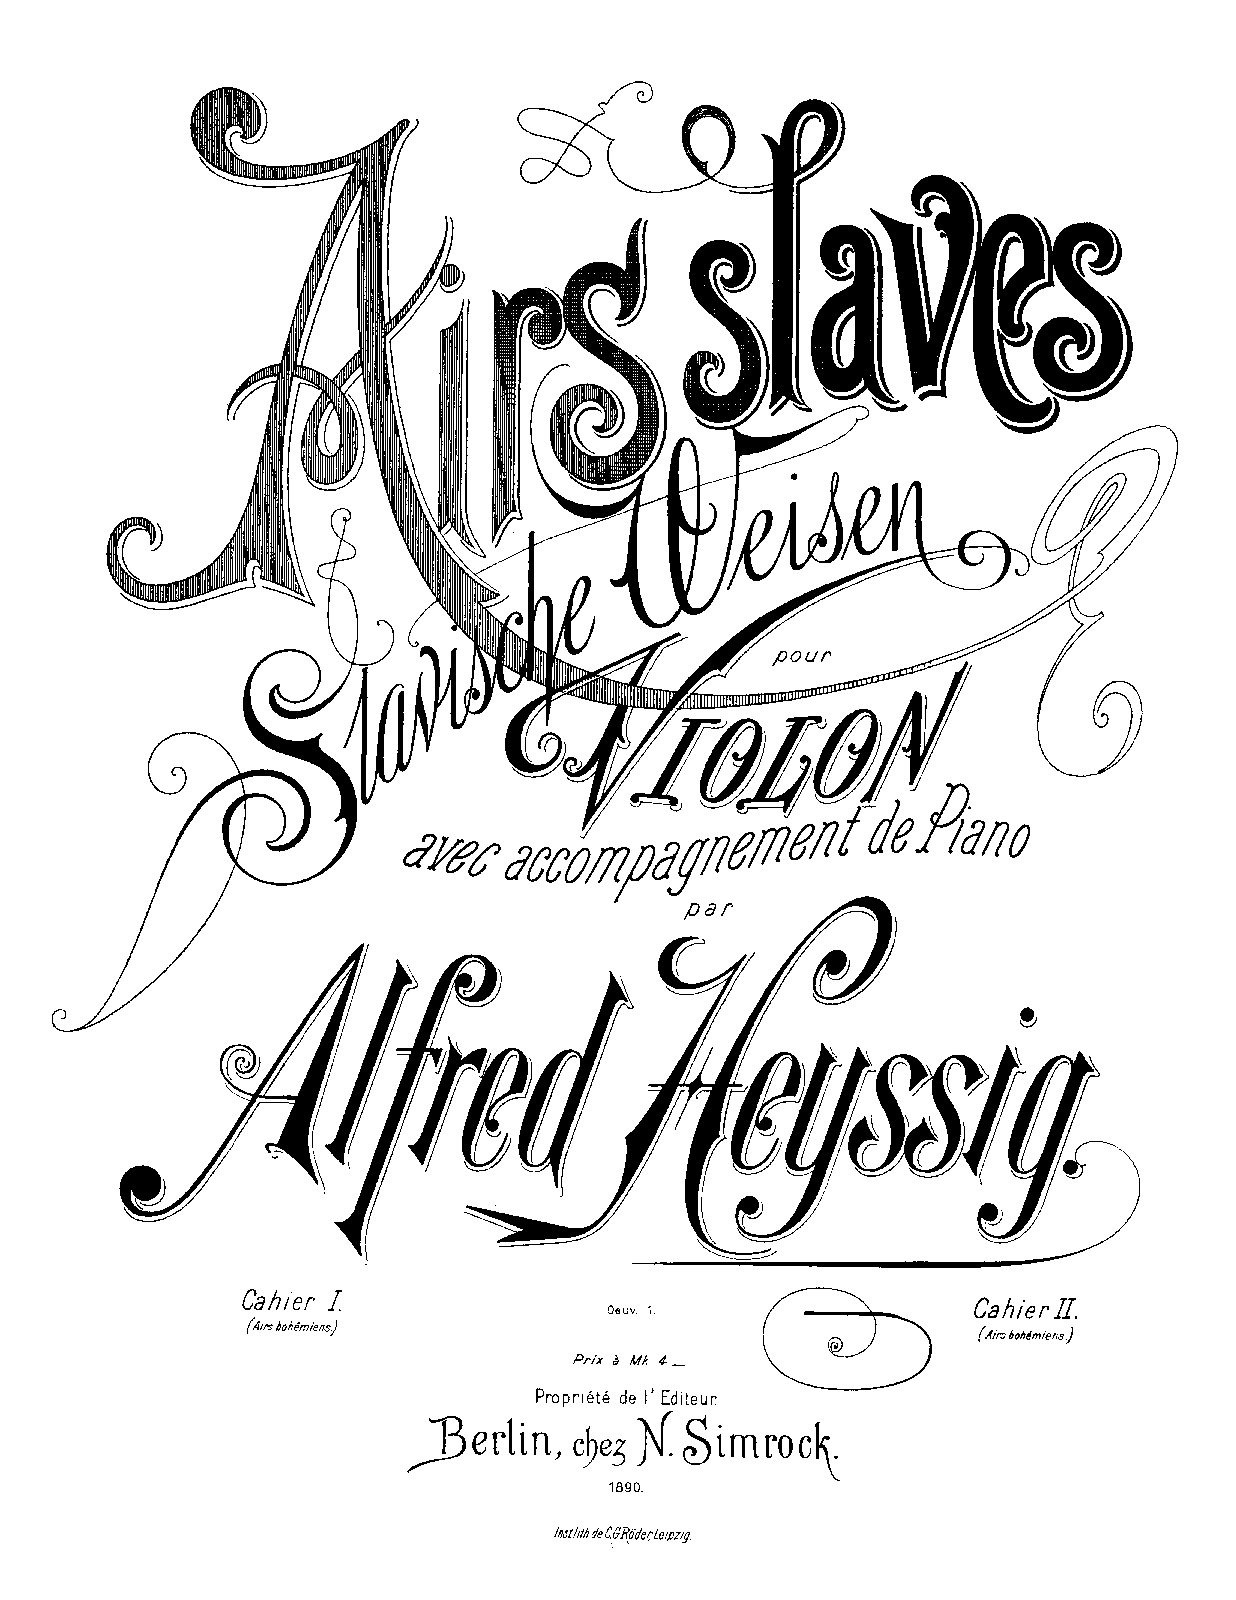 Airs slaves
Slavische Weisen
pour
VIOLON
avec accompagnement de Piano
par
Alfred Heyssig.
Cahier I.
(Airs bohémiens.)
Oeuv. 1.
Cahier II.
(Airs bohémiens.)
Prix à Mk 4_
Propriété de l'Editeur.
Berlin, chez N. Simrock.
1890.
Inst. lith de C.G. Röder, Leipzig.